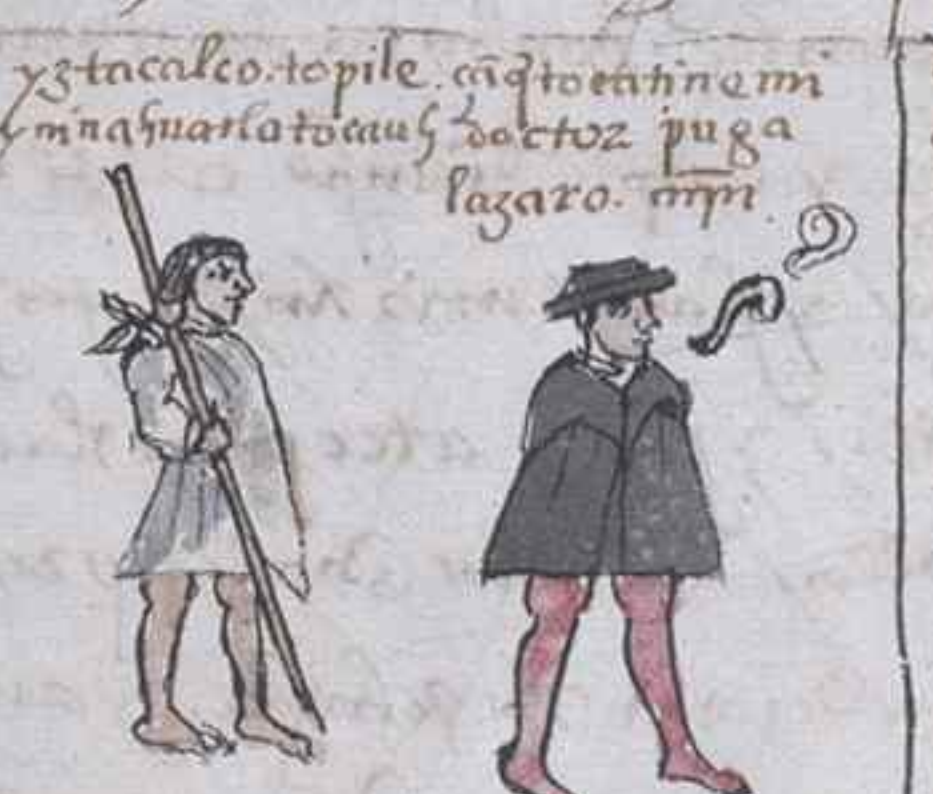 yztacalco. topile. cãq̃tocatinemi
ynnahuatlatocauh doctor puga
lazaro. mȓn